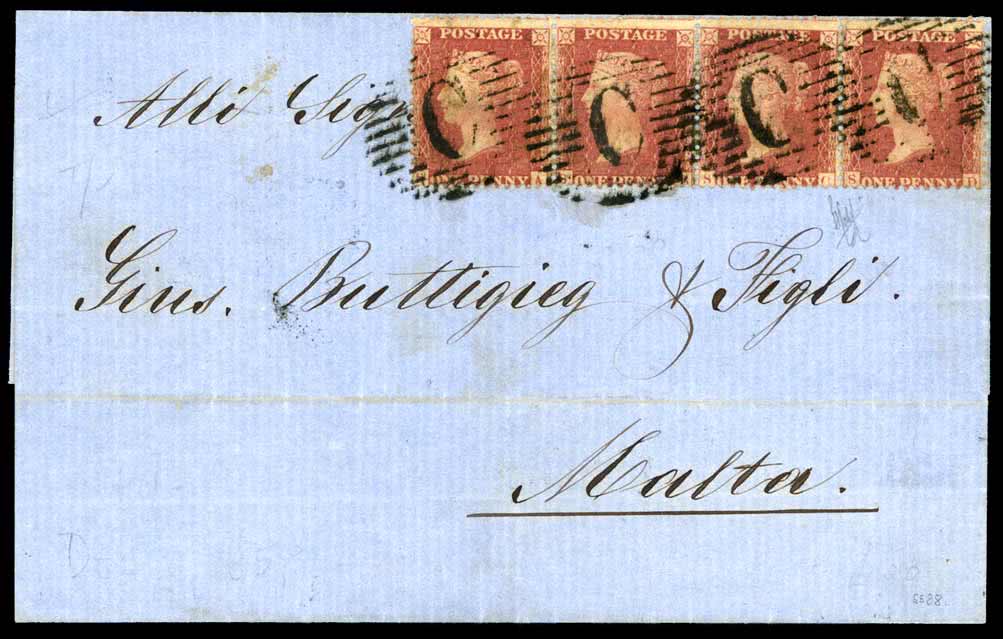 POSTAGE POSTAGE POSTAGE POSTAGE
C C C C
ONE PENNY ONE PENNY ONE PENNY ONE PENNY
Alli
Gius. Buttigieg & Figli.
Malta.